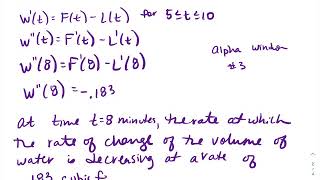 W'(t) = F(t) - L(t) for 5 ≤ t ≤ 10
W"(t) = F'(t) - L'(t)
W"(8) = F'(8) - L'(8)
alpha window
#3
W"(8) = -.183
At time t=8 minutes, the rate at which
the rate of change of the volume of
water is decreasing at a rate of
.183 cubic f